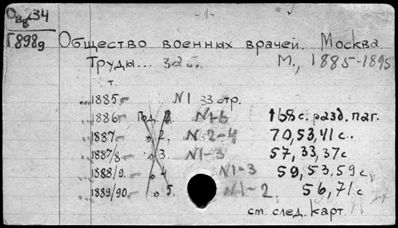 - 1 -
Г898д
Общество военных врачей. Москва.
Труды... за г. М., 1885-1895
т.
1885 - №1 33 стр.
1886 - Год. №1-6 168 с. разд. паг.
1887 - " 2. №2-4 70,53,41 с.
1887/8 - " 3. №1-3 57,33,37с
1888/9. - " 4 №1-3 59,53,59 с.
1889/90. - " 5. №1-2. 56,71 с
см. след. карт.